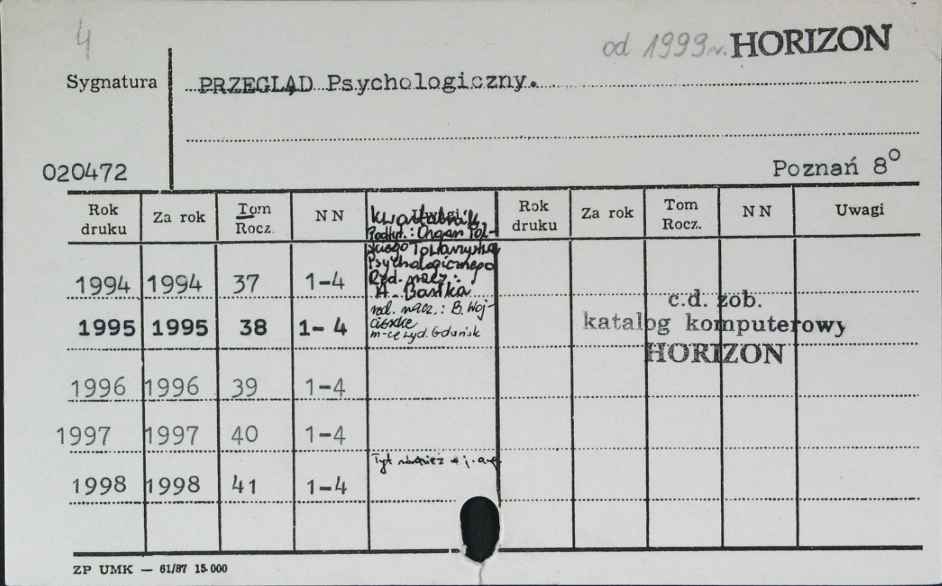 4
od 1999 r. HORIZON
Sygnatura
PRZEGLĄD Psychologiczny.
020472
Poznań 8⁰
Rok druku Za rok Tom Rocz. NN Uwagi Rok druku Za rok Tom Rocz. NN Uwagi
kwartalnik
Podtyt.: Organ Pol-
skiego Towarzystwa
Psychologicznego
1994 1994 37 1-4 Red. nacz.:
A. Bańka
1995 1995 38 1-4 red. nacz.: B. Woj-
ciszke
m-ce wyd. Gdańsk
c.d. zob.
katalog komputerowy
HORIZON
1996 1996 39 1-4
1997 1997 40 1-4
Tyt również w j. ang.
1998 1998 41 1-4
ZP UMK — 61/87 15.000